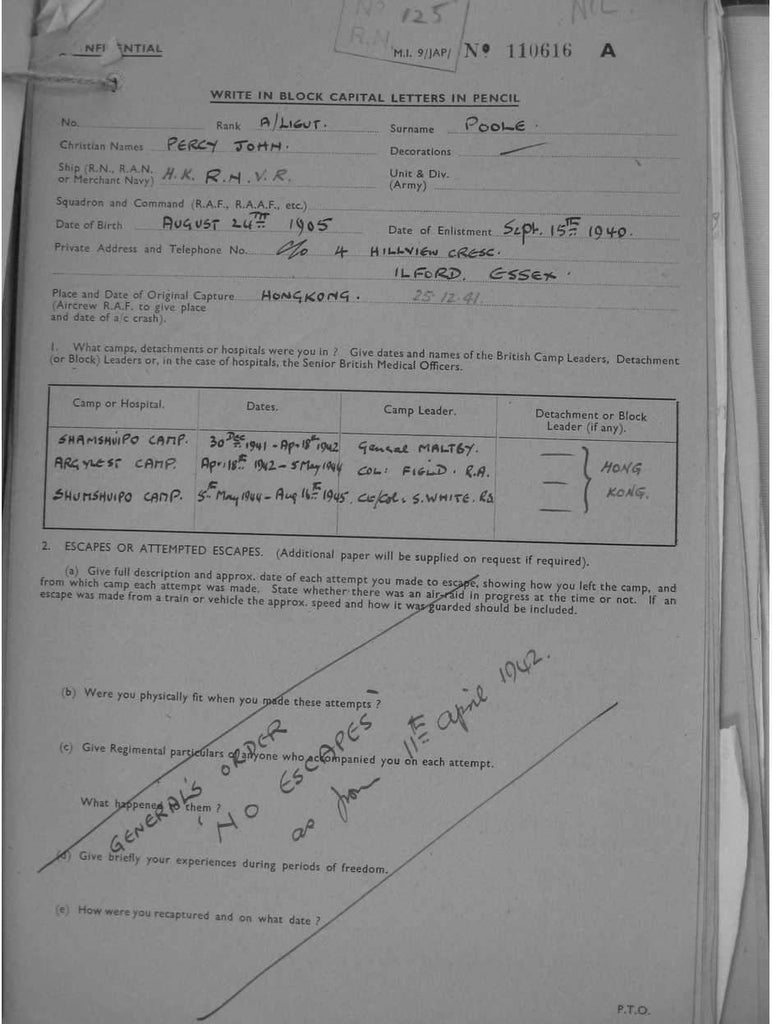 Nº 125 NIL.
R.N.
NFI ENTIAL M.I. 9/JAP/ Nº 110616 A
WRITE IN BLOCK CAPITAL LETTERS IN PENCIL
No. Rank A/LIEUT. Surname POOLE.
Christian Names PERCY JOHN. Decorations
Ship (R.N., R.A.N. or Merchant Navy) H.K. R.N.V.R. Unit & Div. (Army)
Squadron and Command (R.A.F., R.A.A.F., etc.)
Date of Birth AUGUST 24TH 1905 Date of Enlistment Sept. 15TH 1940.
Private Address and Telephone No. c/o 4 HILLVIEW CRESC.
ILFORD, ESSEX.
Place and Date of Original Capture HONGKONG. 25.12.41.
(Aircrew R.A.F. to give place
and date of a/c crash).
1. What camps, detachments or hospitals were you in ? Give dates and names of the British Camp Leaders, Detachment
(or Block) Leaders or, in the case of hospitals, the Senior British Medical Officers.
Camp or Hospital. Dates. Camp Leader. Detachment or Block Leader (if any).
SHAMSHUIPO CAMP. 30 Dec 1941 - Apr 18th 1942 General MALTBY.
ARGYLE ST CAMP. Apr 18th 1942 - 5 May 1944 COL: FIELD. R.A. HONG
SHUMSHUIPO CAMP. 5th May 1944 - Aug 16th 1945. S. WHITE. RS KONG.
2. ESCAPES OR ATTEMPTED ESCAPES. (Additional paper will be supplied on request if required).
(a) Give full description and approx. date of each attempt you made to escape, showing how you left the camp, and
from which camp each attempt was made. State whether there was an air-raid in progress at the time or not. If an
escape was made from a train or vehicle the approx. speed and how it was guarded should be included.
(b) Were you physically fit when you made these attempts ?
(c) Give Regimental particulars of anyone who accompanied you on each attempt.
What happened to them ?
GENERAL'S ORDER
'NO ESCAPES
as from 11th april 1942.
(d) Give briefly your experiences during periods of freedom.
(e) How were you recaptured and on what date ?
P.T.O.